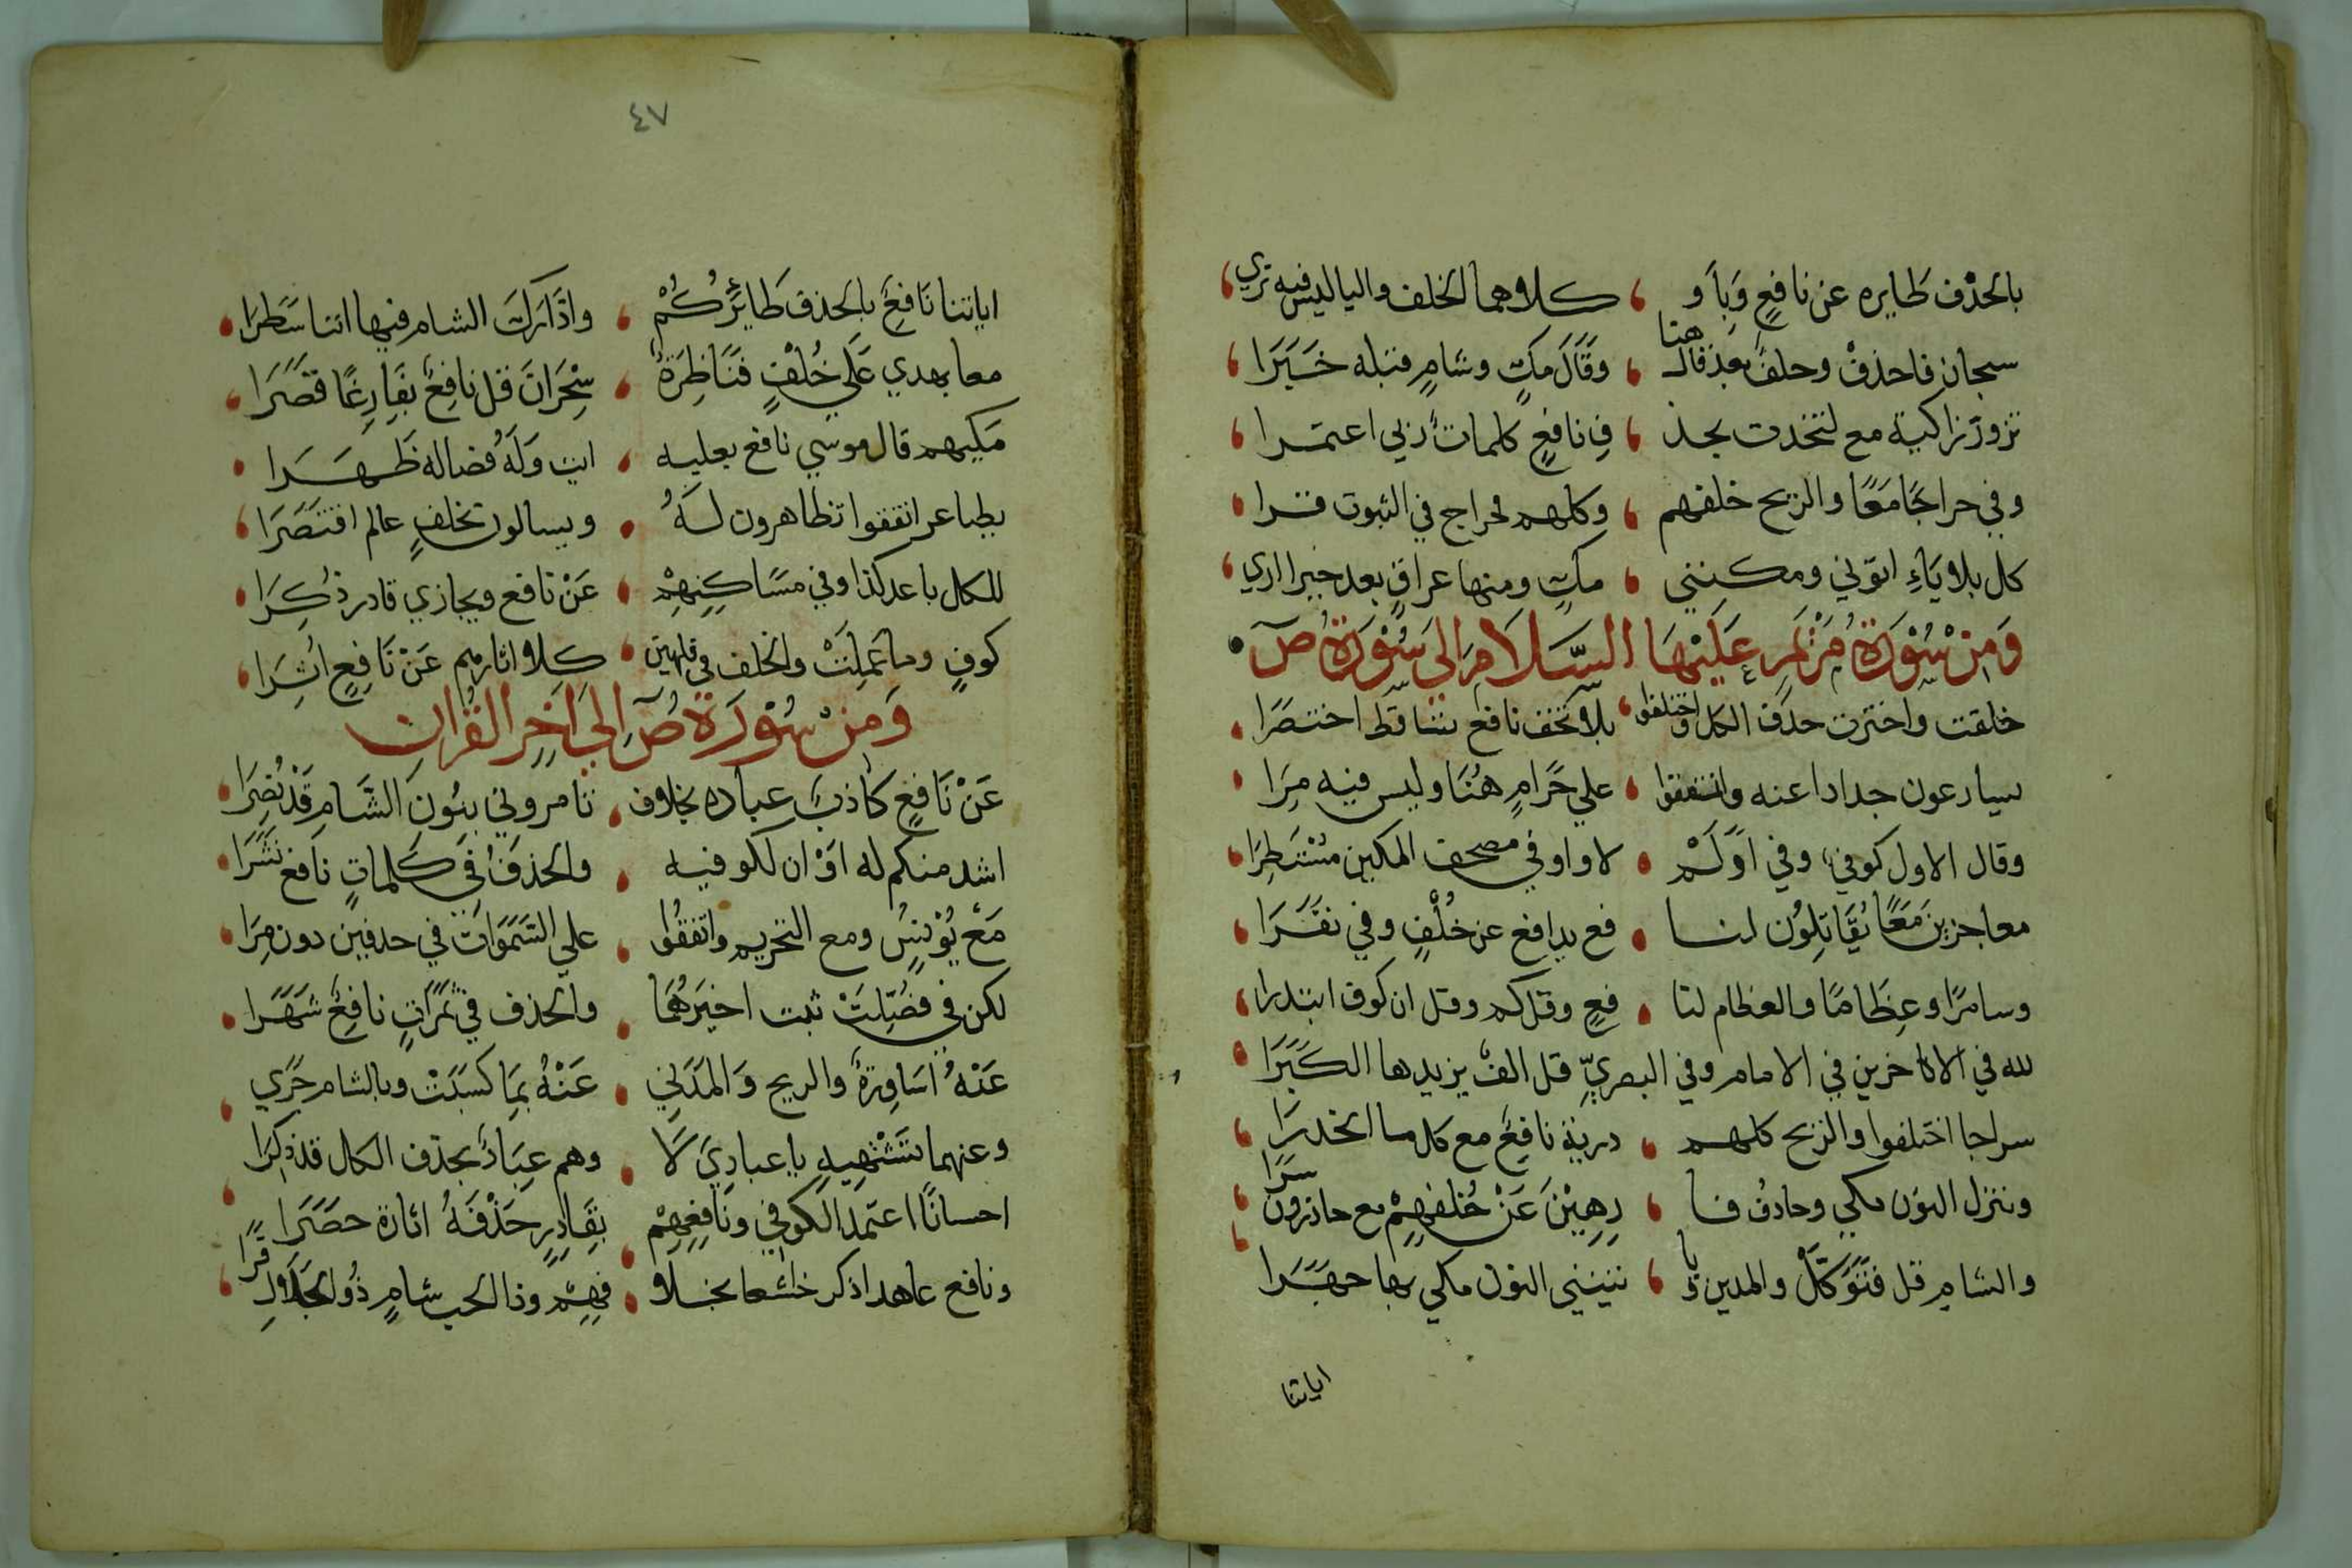 بالحذف طايره عن نافع وبأو ، كلاهما الخلف واليا ليس فيه تري
سبحان فاحذف وخلف بعد قال هنا ، وقال مك وشام قبله خبرا
تزور زاكية مع لتخذت بحذ ، ف نافع كلمات ربي اعتمرا
وفي خراجا معا والريح خلفهم ، وكلهم فخراج في الثبوت قرا
كل بلا ياء اتوني ومكنني ، مك ومنها عراق بعد خيرا اري
ومن سورة مريم عليها السلام الي سورة ص
خلقت واخترت حذف الكل واختلفوا ، بلا تخف نافع تساقط اختصرا
يسارعون جدادا عنه واتفقوا ، علي حرام هنا وليس فيه مرا
وقال الاول كوفي وفي اولم ، لا واو في مصحف المكين مستطرا
معاجزين معا يقاتلون لنا ، فع يدافع عن خلف وفي نفرا
وسامرا وعظاما والعظام لنا ، فع وقل كم وقل ان كوف ابتدرا
لله في الاخرين في الامام وفي البصري قل الف يزيدها الكبرا
سراجا اختلفوا والريح كلهم ، درية نافع مع كل ما انحدرا
وننزل النون مكي وحاذف فا ، رهين عن خلفهم مع حاذرون سرا
والشام قل فتوكل والمدين ويا ، تينني النون مكي بها جهرا
اياتنا
٤٧
اياتنا نافع بالحذف طايركم ، وادارك الشام فيها اننا سطرا
معا بهدي علي خلف فناظرة ، سحران قل نافع بفارغا قصرا
مكيهم قال موسي نافع بعليه ، ايت وله فصاله ظهرا
تصاعر اتفقوا تظاهرون له ، ويسالون تخلف عالم اقتصرا
للكل باعد كذا وفي مساكنهم ، عن نافع ويجازي قادر ذكرا
كوف وما عملت والخلف في فكهين ، كلا واثارهم عن نافع اثرا
ومن سورة ص الي اخر القران
عن نافع كاذب عباده بخلاف ، تامروني بنون الشام قد نصرا
اشد منكم له او ان لكوفيه ، والحذف في كلمات نافع نشرا
مع يونس ومع التحريم واتفقوا ، علي السموات في حذفين دون مرا
لكن في فصلت ثبت اخيرهما ، والحذف في ثمرات نافع شهرا
عنه اساورة والريح والمدني ، عنه بما كسبت وبالشام جري
وعنهما تشتهيه يا عبادي لا ، وهم عباد بحذف الكل قد ذكرا
احسانا اعتمد الكوفي ونافعهم ، بقادر حذفه اثارة حصرا
ونافع عاهدا ذكر خاشعا بخلا ، فهم وذا الحب شام ذو الجلال قرا